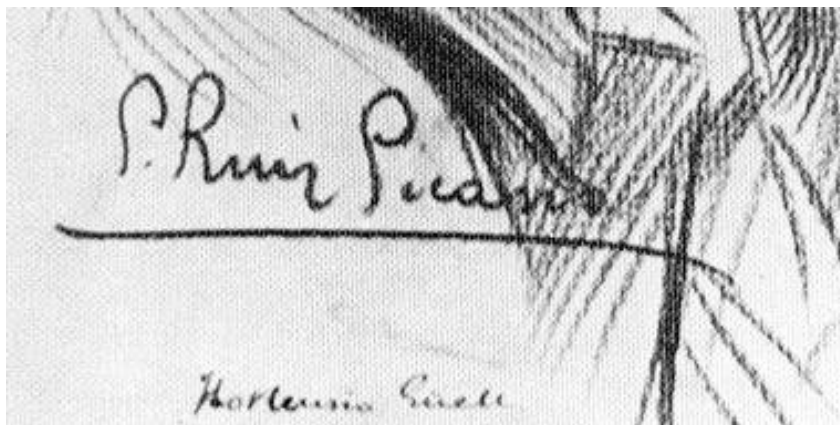 P. Ruiz Picasso
Hortensio Güell